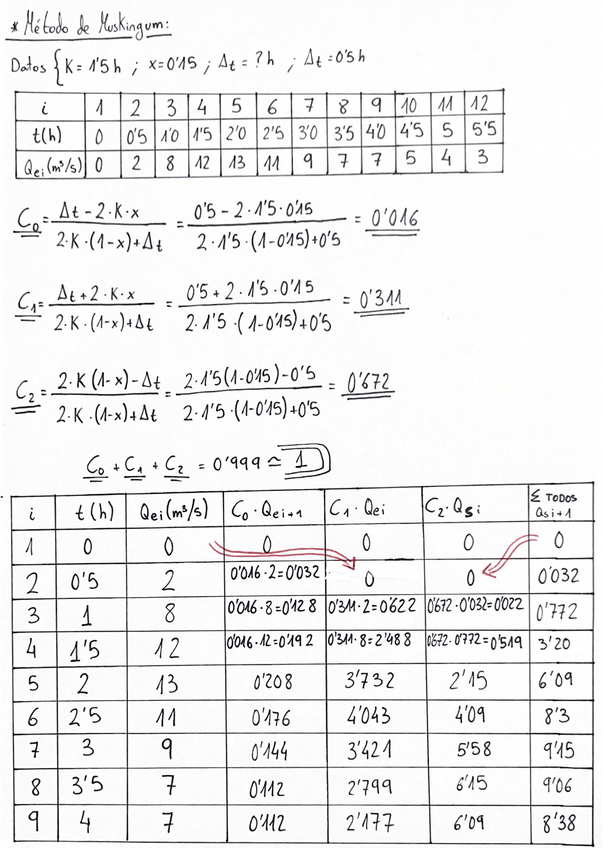 * Método de Muskingum:
Datos { K = 1'5 h ; x = 0'15 ; Δt = ? h ; Δt = 0'5 h
i 1 2 3 4 5 6 7 8 9 10 11 12
t(h) 0 0'5 1'0 1'5 2'0 2'5 3'0 3'5 4'0 4'5 5 5'5
Qei(m³/s) 0 2 8 12 13 11 9 7 7 5 4 3
C0 = (Δt - 2·K·x) / (2·K·(1-x)+Δt) = (0'5 - 2·1'5·0'15) / (2·1'5·(1-0'15)+0'5) = 0'016
C1 = (Δt + 2·K·x) / (2·K·(1-x)+Δt) = (0'5 + 2·1'5·0'15) / (2·1'5·(1-0'15)+0'5) = 0'311
C2 = (2·K(1-x)-Δt) / (2·K·(1-x)+Δt) = (2·1'5(1-0'15)-0'5) / (2·1'5·(1-0'15)+0'5) = 0'672
C0 + C1 + C2 = 0'999 ≃ 1
i t(h) Qei(m³/s) C0·Qei+1 C1·Qei C2·Qsi Σ TODOS Qsi+1
1 0 0 0 0 0 0
2 0'5 2 0'016·2=0'032 0 0 0'032
3 1 8 0'016·8=0'128 0'311·2=0'622 0'672·0'032=0'022 0'772
4 1'5 12 0'016·12=0'192 0'311·8=2'488 0'672·0'772=0'519 3'20
5 2 13 0'208 3'732 2'15 6'09
6 2'5 11 0'176 4'043 4'09 8'3
7 3 9 0'144 3'421 5'58 9'15
8 3'5 7 0'112 2'799 6'15 9'06
9 4 7 0'112 2'177 6'09 8'38